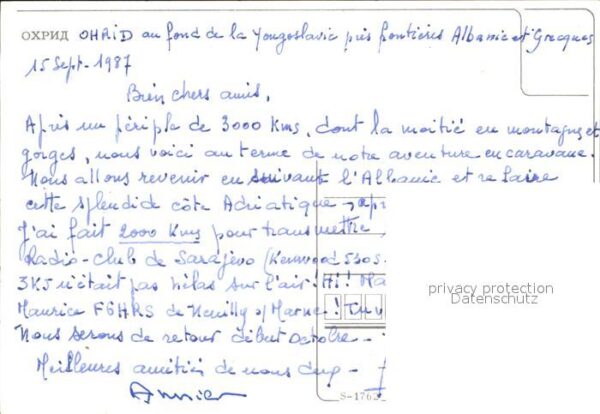 ОХРИД OHRID au fond de la Yougoslavie près frontières Albanie et Grecques
15 Sept. 1987
Bien chers amis,
Après un périple de 3000 Kms, dont la moitié en montagnes et
gorges, nous voici au terme de notre aventure en caravane.
Nous allons revenir en suivant l'Albanie et refaire
cette splendide côte Adriatique
J'ai fait 2000 Kms pour transmettre
Radio-club de Sarajevo (Kenwood 530S.
n'était pas hélas sur l'air! Hi!
Maurice F6HRS de Neuilly s/ Marne!
Nous serons de retour début Octobre -
Meilleures amitiés de nous deux -
privacy protection
Datenschutz
S-1762